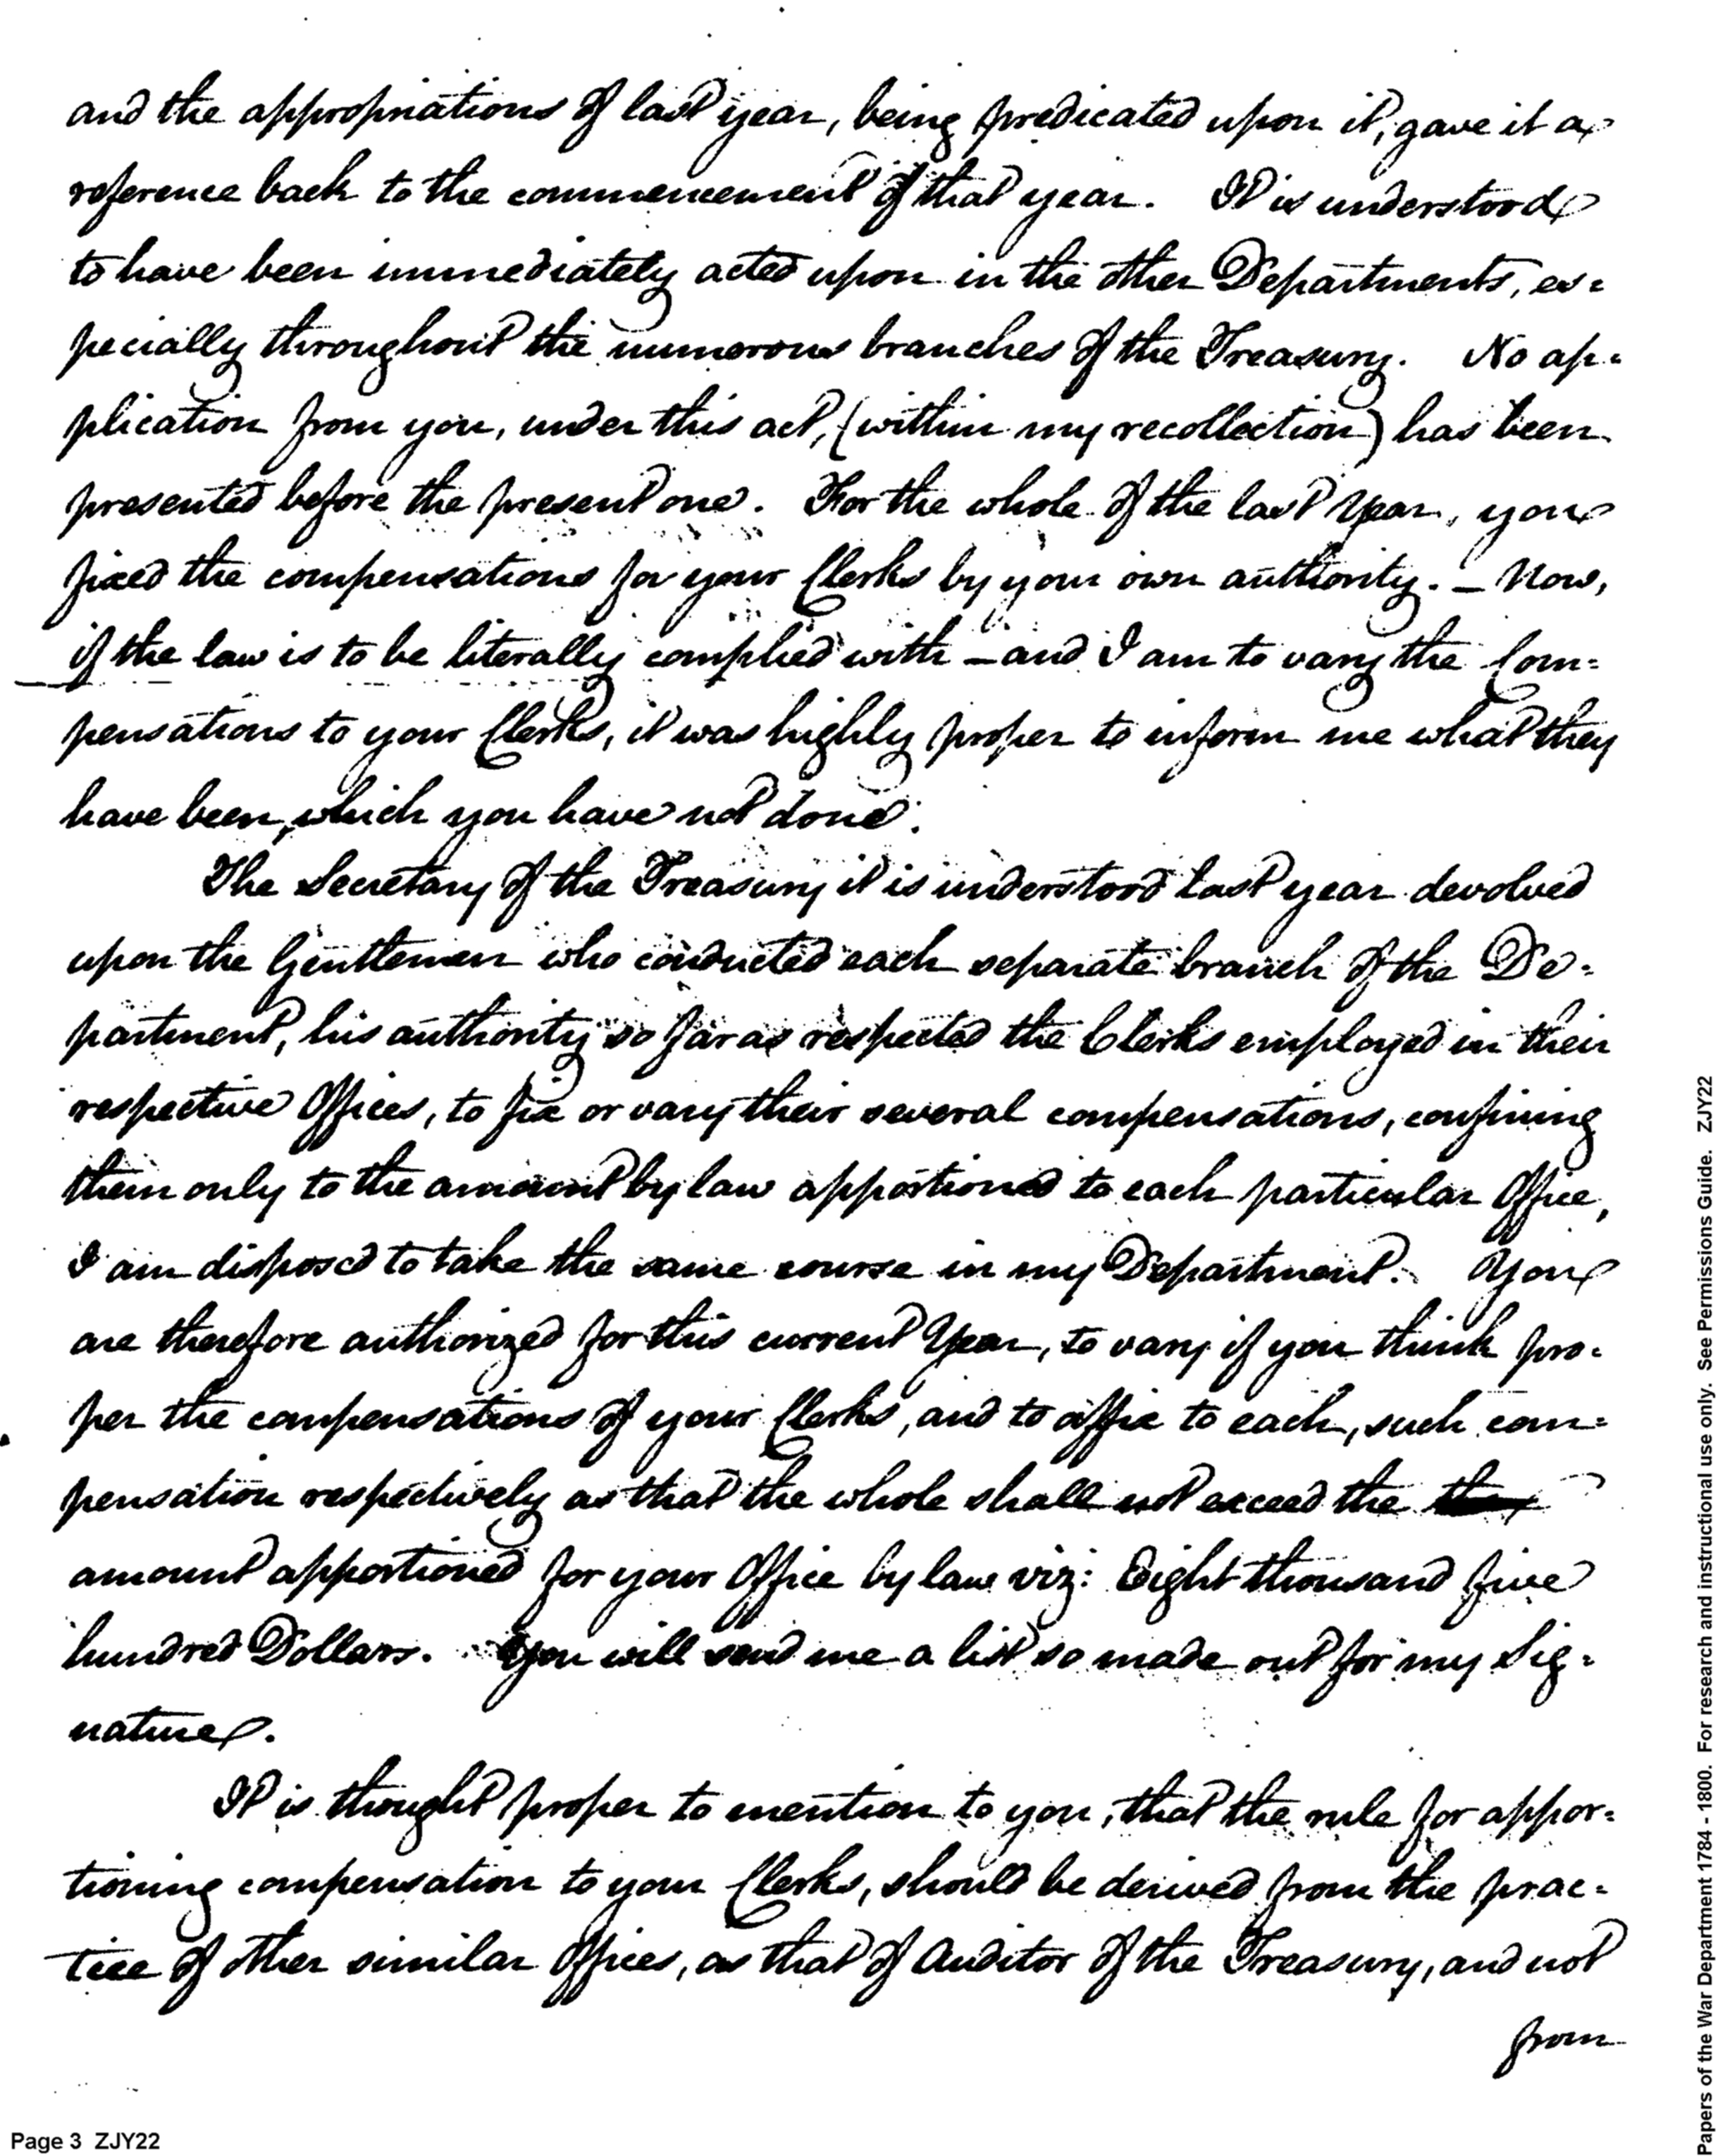 and the appropriations of last year, being predicated upon it, gave it a
reference back to the commencement of that year. It is understood
to have been immediately acted upon in the other Departments, es=
pecially throughout the numerous branches of the Treasury. No ap=
plication from you, under this act, (within my recollection) has been
presented before the present one. For the whole of the last Year, you
fixed the compensations for your Clerks by your own authority. – Now,
if the law is to be literally complied with – and I am to vary the Com=
pensations to your Clerks, it was highly proper to inform me what they
have been, which you have not done.
The Secretary of the Treasury it is understood last year devolved
upon the Gentlemen who conducted each separate branch of the De=
partment, his authority so far as respected the Clerks employed in their
respective Offices, to fix or vary their several compensations, confining
them only to the amount by law apportioned to each particular Office,
I am disposed to take the same course in my Department. You
are therefore authorized for this current Year, to vary if you think pro=
per the compensations of your Clerks, and to affix to each, such com=
pensation respectively as that the whole shall not exceed the
amount apportioned for your Office by law viz: Eight thousand five
hundred Dollars. You will send me a list so made out for my Sig=
nature.
It is thought proper to mention to you, that the rule for appor=
tioning compensation to your Clerks, should be derived from the prac=
tice of other similar Offices, as that of Auditor of the Treasury, and not
from
Page 3 ZJY22
Papers of the War Department 1784 - 1800. For research and instructional use only. See Permissions Guide. ZJY22